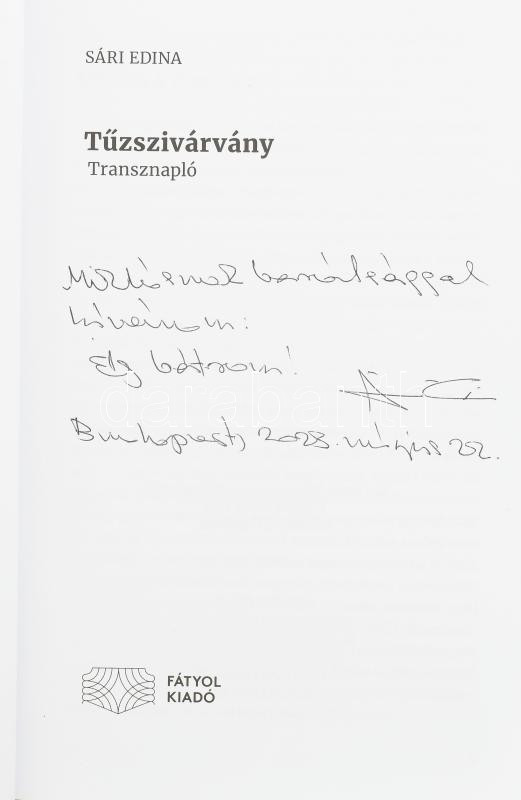 SÁRI EDINA
Tűzszivárvány
Transznapló
Miklósnak barátsággal
kívánom:
Élj bátran!
darabanth
Budapest, 2023. május 22.
FÁTYOL
KIADÓ